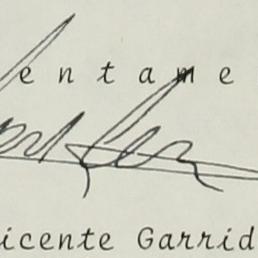 e n t a m e
icente Garrid